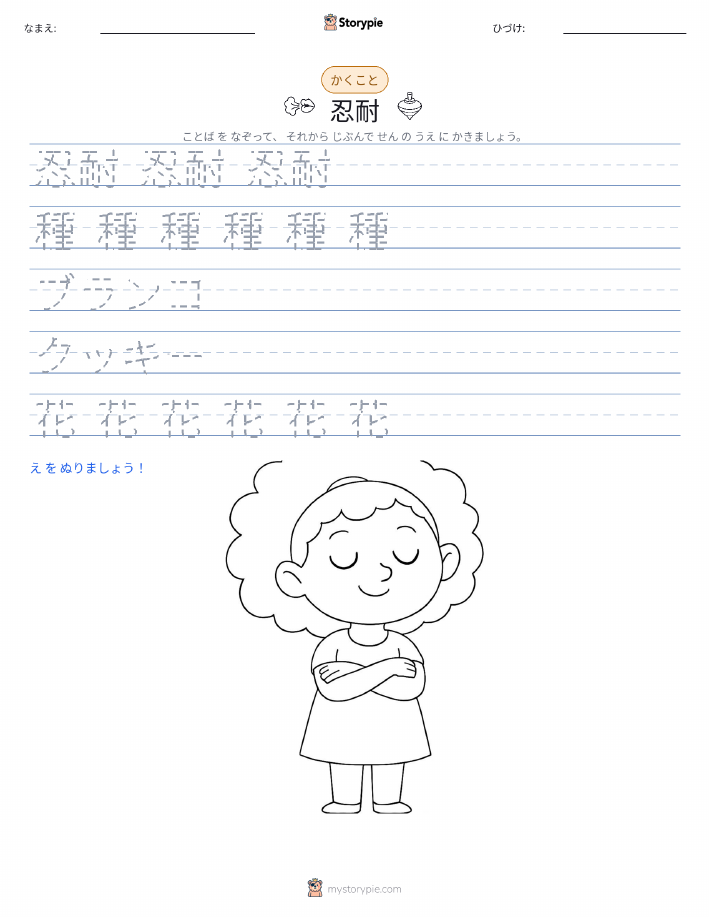 なまえ:
Storypie
ひづけ:
かくこと
忍耐
ことば を なぞって、 それから じぶんで せん の うえ に かきましょう。
忍耐 忍耐 忍耐
種 種 種 種 種 種
ブランコ
クッキー
花 花 花 花 花 花
え を ぬりましょう！
mystorypie.com